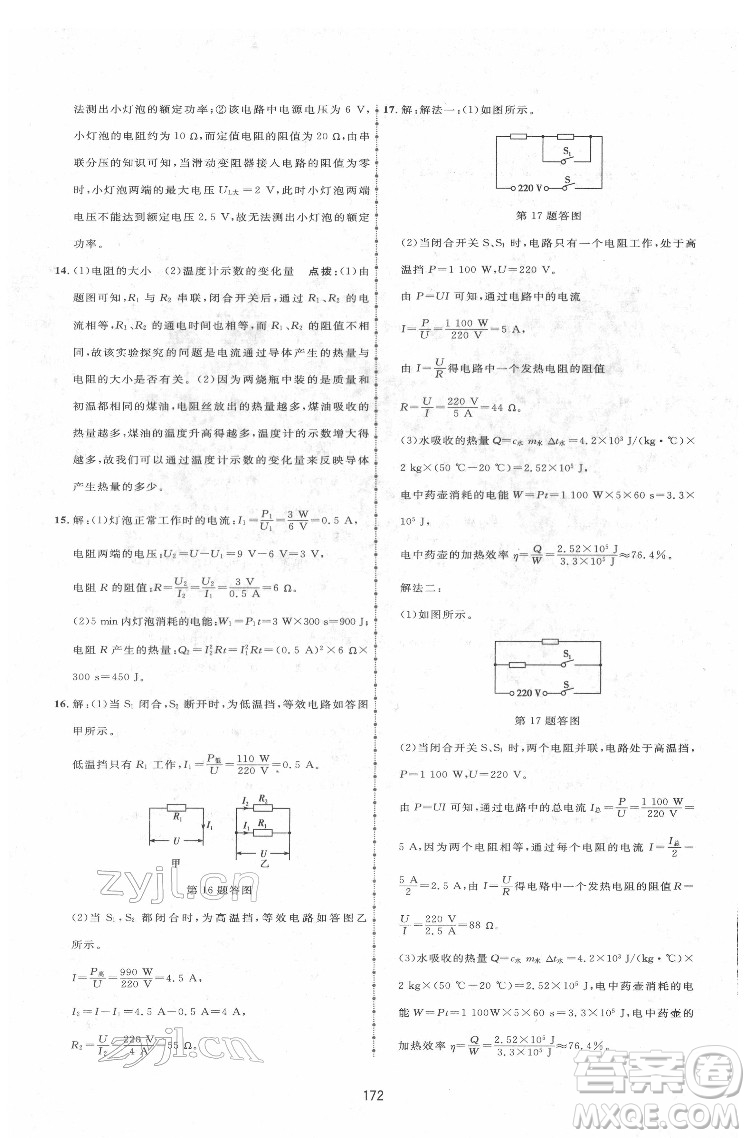 法测出小灯泡的额定功率；②该电路中电源电压为 6 V，
小灯泡电阻约为 10 Ω，而定值电阻的阻值为 20 Ω，由串
联分压的知识可知，当滑动变阻器接入电路的电阻为零
时，小灯泡两端的最大电压 U₁大＝2 V，此时小灯泡两端
电压不能达到额定电压 2.5 V，故无法测出小灯泡的额定
功率。
14.(1)电阻的大小 (2)温度计示数的变化量 点拨：(1)由
题图可知，R₁ 与 R₂ 串联，闭合开关后，通过它们的电流
相等，R₁、R₂ 的通电时间也相等，而它们的阻值不同，
故该实验探究的是电流通过导体产生的热量与
电阻的大小是否有关。(2)因为两烧瓶中装的是质量和
初温都相同的煤油，电阻丝放出的热量越多，煤油吸收的
热量越多，煤油的温度升高得越多，温度计的示数增大得
越多，故我们可以通过温度计示数的变化量来反映导体
产生热量的多少。
15.解：(1)灯泡正常工作时的电流：I₁＝P₁/U₁＝3 W/6 V＝0.5 A，
电阻两端的电压：U₂＝U－U₁＝9 V－6 V＝3 V，
电阻 R 的阻值：R＝U₂/I₂＝U₂/I₁＝3 V/0.5 A＝6 Ω。
(2)5 min内灯泡消耗的电能：W₁＝P₁t＝3 W×300 s＝900 J，
电阻 R 产生的热量：Q₂＝I₂²Rt＝I₁²Rt＝(0.5 A)²×6 Ω×
300 s＝450 J。
16.解：(1)当 S₁ 闭合，S₂ 断开时，为低温挡，等效电路如答图
甲所示。
低温挡只有 R₁ 工作，I₁＝P低/U＝110 W/220 V＝0.5 A。
R₁ I₁ U 甲
I₂ R₂ I₁ R₁ U 乙
第 16 题答图
(2)当 S₁、S₂ 都闭合时，为高温挡，等效电路如答图乙
所示。
I＝P高/U＝990 W/220 V＝4.5 A，
I₂＝I－I₁＝4.5 A－0.5 A＝4 A，
R₂＝U/I₂＝220 V/4 A＝55 Ω。
17.解：解法一：(1)如图所示。
S₁
220 V S
第 17 题答图
(2)当闭合开关 S、S₁ 时，电路只有一个电阻工作，处于高
温挡 P＝1 100 W，U＝220 V，
由 P＝UI 可知，通过电路中的电流
I＝P/U＝1 100 W/220 V＝5 A，
由 I＝U/R得电路中一个发热电阻的阻值
R＝U/I＝220 V/5 A＝44 Ω。
(3)水吸收的热量 Q＝c水 m水 Δt＝4.2×10³ J/(kg·℃)×
2 kg×(50 ℃－20 ℃)＝2.52×10⁵ J，
电中药壶消耗的电能 W＝Pt＝1 100 W×5×60 s＝3.3×
10⁵ J，
电中药壶的加热效率 η＝Q/W＝2.52×10⁵ J/3.3×10⁵ J≈76.4%。
解法二：
(1)如图所示。
S₁
220 V S
第 17 题答图
(2)当闭合开关 S、S₁ 时，两个电阻并联，电路处于高温挡，
P＝1 100 W，U＝220 V，
由 P＝UI 可知，通过电路中的总电流 I总＝P/U＝1 100 W/220 V＝
5 A，因为两个发热电阻相同，则通过一个电阻的电流 I＝I总/2＝
5 A/2＝2.5 A，由 I＝U/R得电路中一个发热电阻的阻值 R＝
U/I＝220 V/2.5 A＝88 Ω。
(3)水吸收的热量 Q＝c水 m水 Δt＝4.2×10³ J/(kg·℃)×
2 kg×(50 ℃－20 ℃)＝2.52×10⁵ J，电中药壶消耗的电能
W＝Pt＝1 100 W×5×60 s＝3.3×10⁵ J，电中药壶的
加热效率 η＝Q/W＝2.52×10⁵ J/3.3×10⁵ J≈76.4%。
172
zyjl.cn
zyjl.cn
答案圈
MXQE.COM